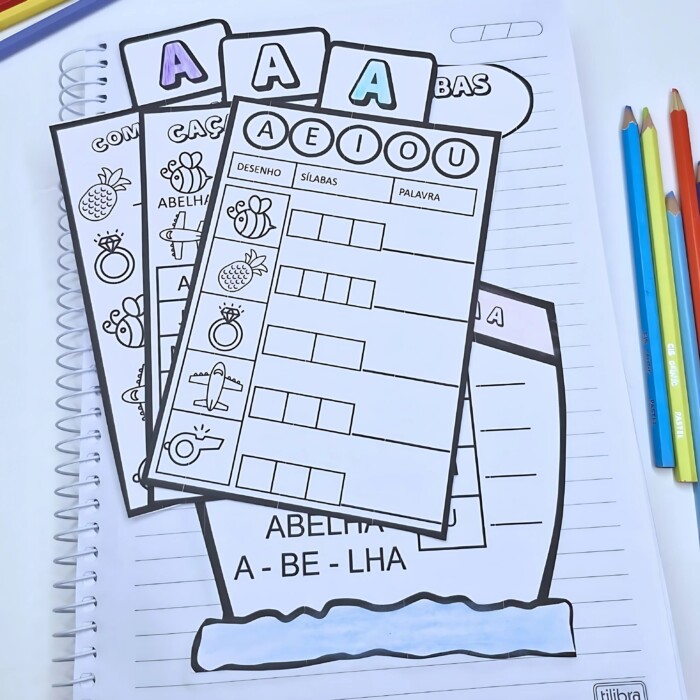 A A A
BAS
COM
CAÇ
A E I O U
DESENHO SÍLABAS PALAVRA
ABELHA
A
A
U
ABELHA
A - BE - LHA
tilibra